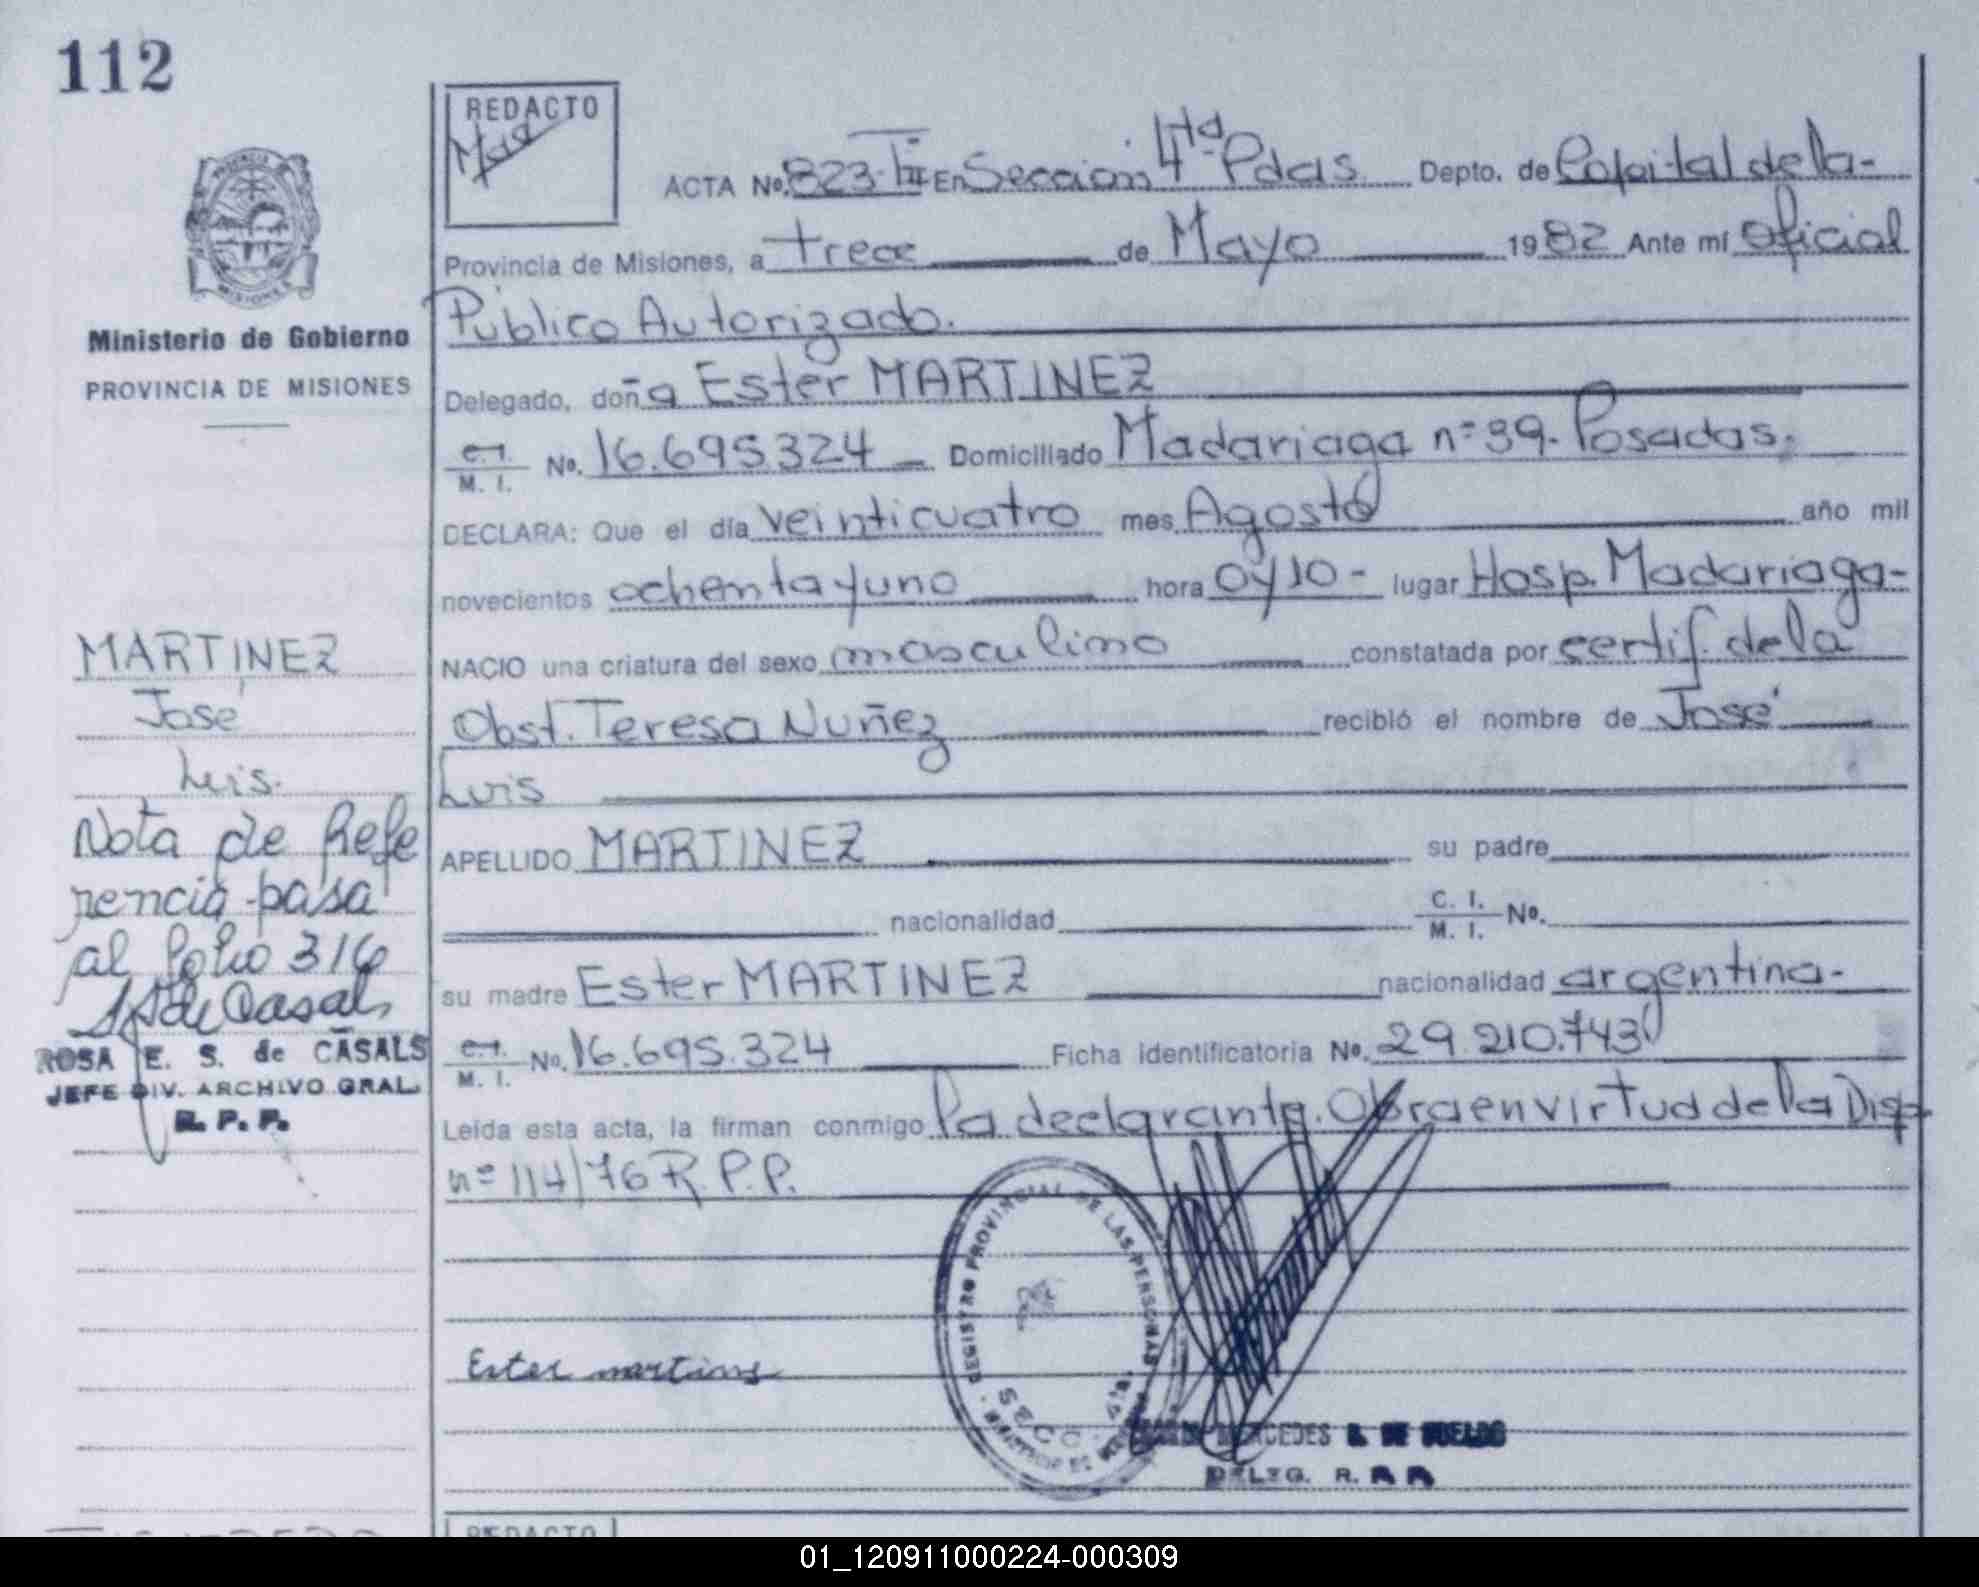 112
REDACTO
ACTA No. 823-III En Sección 4ta Pdas. Depto. de Capital de la-
Provincia de Misiones, a trece de Mayo 1982 Ante mí Oficial
Público Autorizado.
Delegado, doña Ester MARTINEZ
C.I.
M. I. No. 16.695.324 Domiciliado Madariaga nº 39. Posadas.
DECLARA: Que el día veinticuatro mes Agosto año mil
novecientos ochenta y uno hora 0y10- lugar Hosp. Madariaga-
NACIO una criatura del sexo masculino constatada por certif. de la
Obst. Teresa Nuñez recibió el nombre de José
Luis
APELLIDO MARTINEZ su padre
nacionalidad C. I.
M. I. No.
su madre Ester MARTINEZ nacionalidad argentina-
C.I.
M. I. No. 16.695.324 Ficha identificatoria No. 29.210.743
Leida esta acta, la firman conmigo la declarante. Obra en virtud de la Disp.
nº 114/76 R.P.P.
Ester martines
REGISTRO PROVINCIAL DE LAS PERSONAS
MERCEDES
DELEG. R.
PROVINCIA DE
MISIONES
Ministerio de Gobierno
PROVINCIA DE MISIONES
MARTINEZ
José
Luis.
Nota de Refe
rencia pasa
al folio 316
ROSA E. S. de CASALS
JEFE DIV. ARCHIVO GRAL.
R. P. P.
REDACTO
01_120911000224-000309